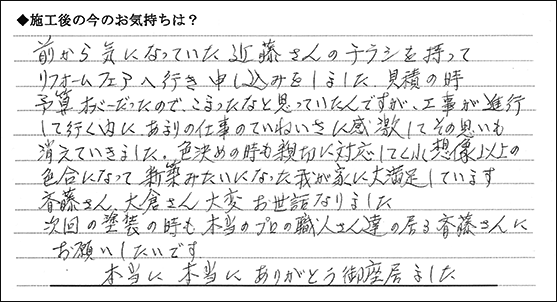 ◆施工後の今のお気持ちは？
前から気になっていた近藤さんのチラシを持って
リフォームフェアへ行き申し込みをしました 見積の時
予算オーバーだったので、こまったなと思っていたんですが、工事が進行
して行く内に、あまりの仕事のていねいさに感激してその思いも
消えていきました。色決めの時も親切に対応してくれ想像以上の
色合になって新築みたいになった我が家に大満足しています
斉藤さん、大倉さん大変お世話なりました
次回の塗装の時も本当のプロの職人さん達の居る斉藤さんに
お願いしたいです
本当に 本当に ありがとう御座居ました